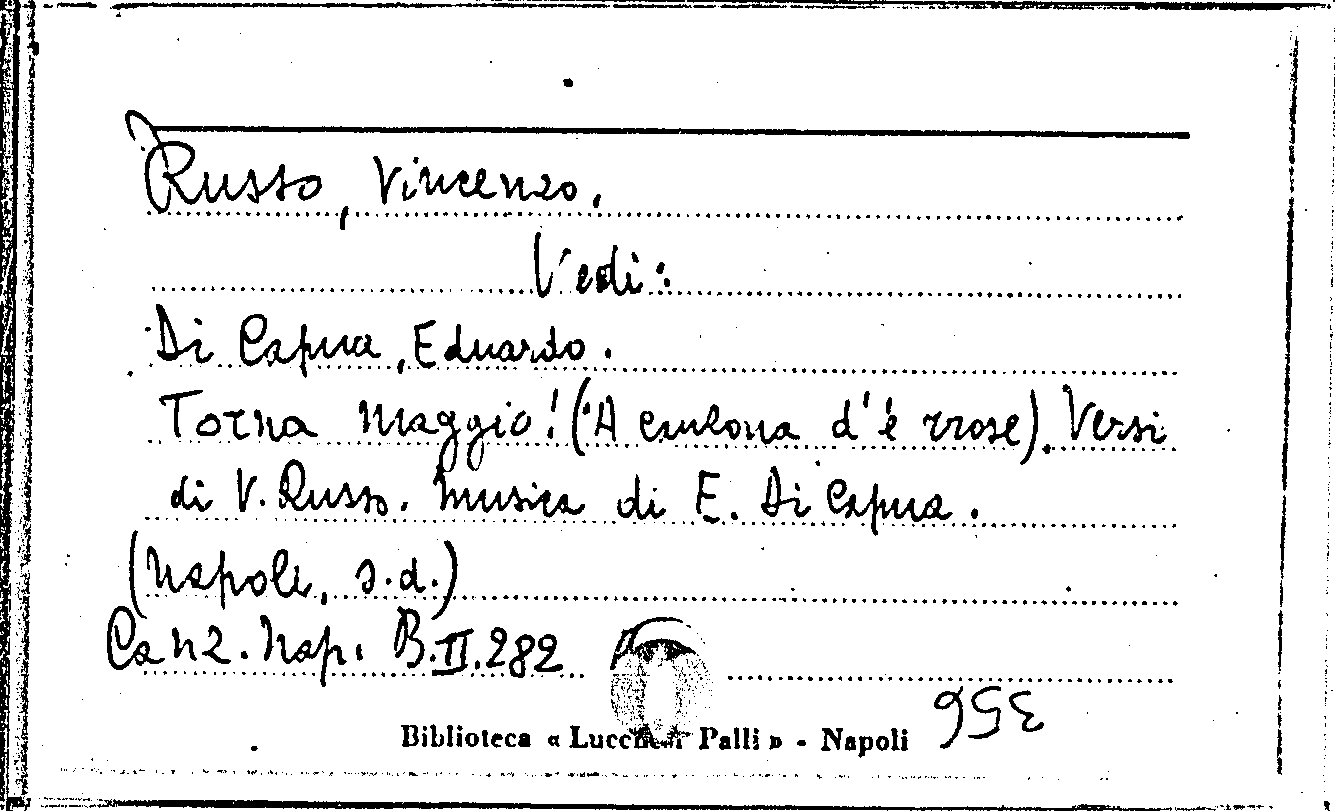 Russo, Vincenzo.
Vedi:
Di Capua, Eduardo.
Torna Maggio! ('A canzona d'è rrose). Versi
di V. Russo. Musica di E. Di Capua.
(Napoli, s.d.)
Canz. Nap. B.II.282
Biblioteca « Lucchesi Palli » - Napoli
356